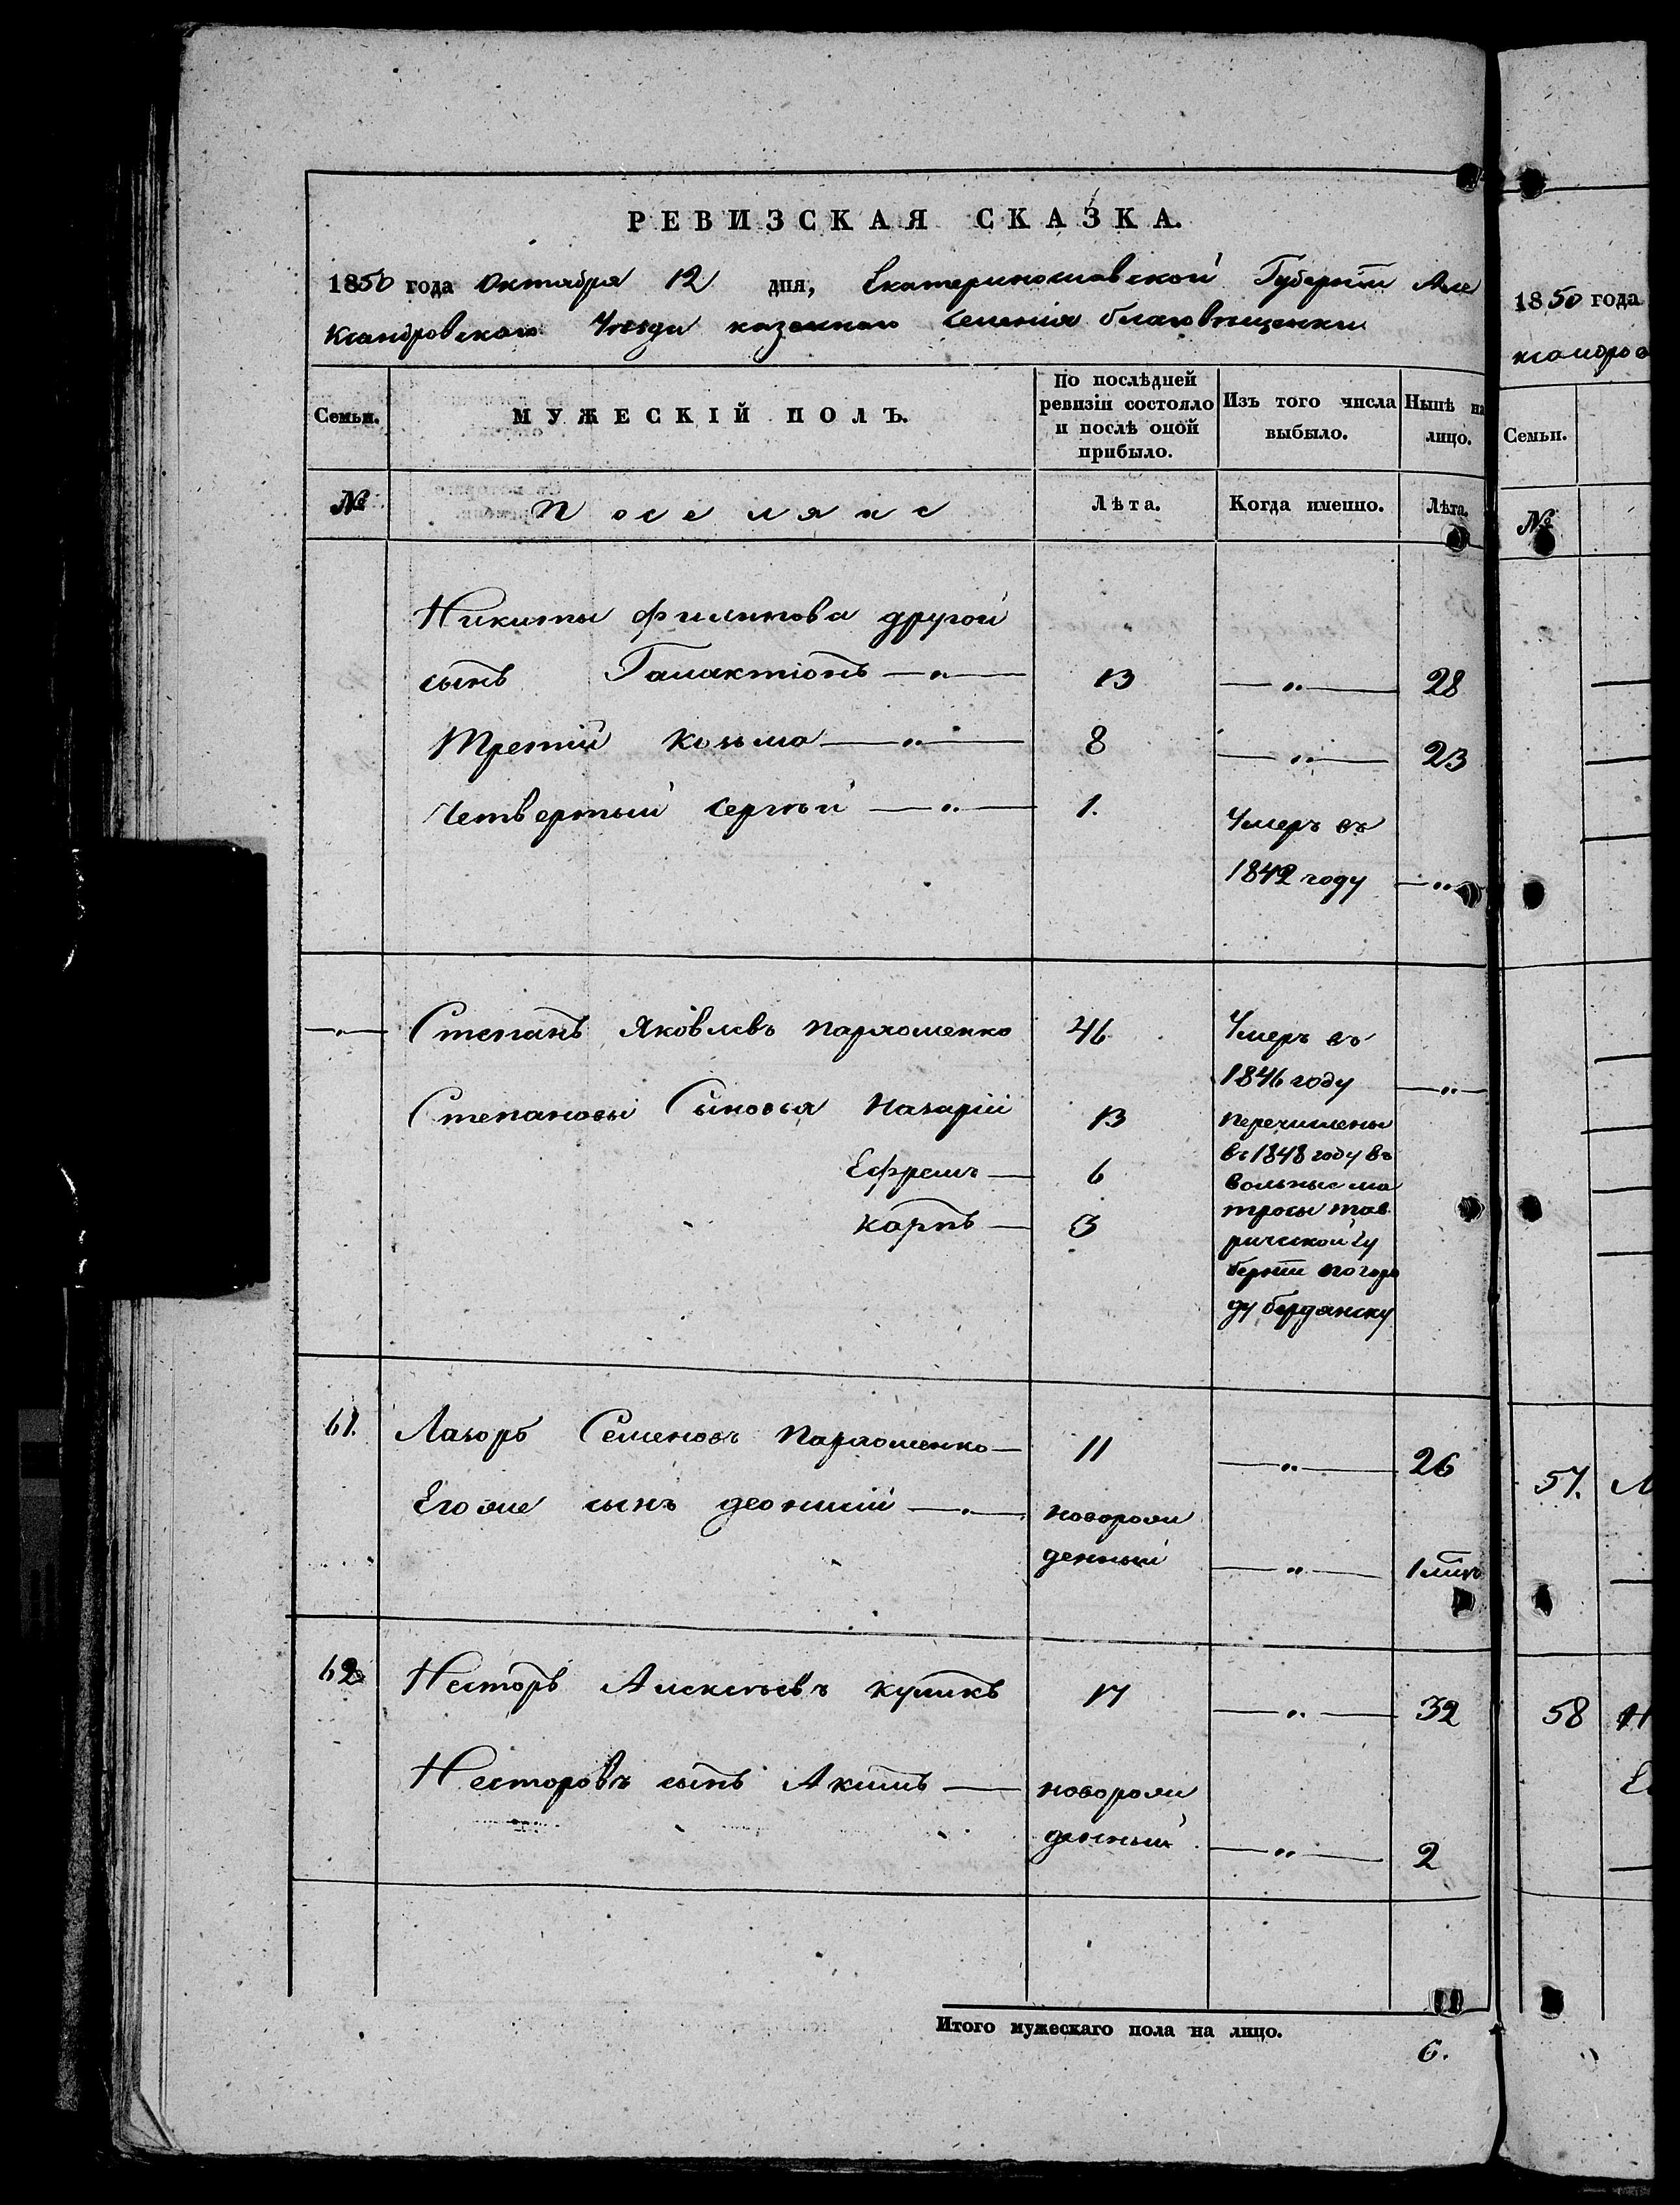 РЕВИЗСКАЯ СКАЗКА.
1850 года Октября 12 дня, Екатеринославской Губерніи Але
ксандровскаго Уезда казеннаго селенія благовещенки
Семьи. МУЖЕСКІЙ ПОЛЪ. По послѣдней ревизіи состояло и послѣ оной прибыло. Изъ того числа выбыло. Нынѣ на лицо.
№ Поселяне Лѣта. Когда именно. Лѣта.
Никиты филипова другой
сынъ Галактіонъ —„— 13 —„— 28
Третій Козьма —„— 8 —„— 23
Четвертый Сергѣй —„— 1. Умеръ въ
1842 году —„—
—„— Степанъ Яковлевъ Пархоменко 46 Умеръ въ
1846 году —„—
Степановы Сыновья Назарій 13 перечислены
въ 1848 году въ
Ефремъ — 6 вольные ма
тросы тав
карпъ — 3 рической гу
берніи по горо
ду бердянску
61. Лазарь Семеновъ Пархоменко — 11 —„— 26
Егоже сынъ деонисій —„— новорож
денный —„— 1 мѣс
62 Несторъ Алексѣевъ куликъ 17 —„— 32
Несторовъ сынъ Акимъ — новорож
денный —„— 2
Итого мужескаго пола на лицо.
6.
1850 года
ксандров
Семьи.
№
57.
58